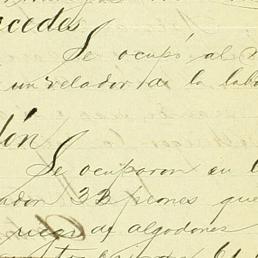 cedes
Se ocupó al
un velador de la lab
ón
Se ocuparon en l
ador 33 peones que
riego de algodones